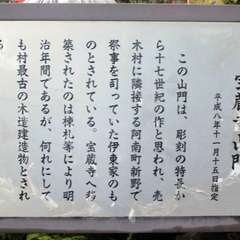 宝蔵寺山門
平成八年十一月十五日指定
この山門は、彫刻の特長か
ら十七世紀の作と思われ、売
木村に隣接する阿南町新野で
祭事を司っていた伊東家のも
のとされている。宝蔵寺へ移
築されたのは棟札等により明
治年間であるが、何れにして
も村最古の木造建造物とされ
る